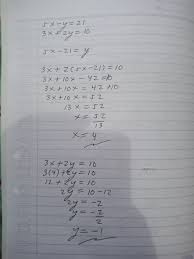 5x-y=21
3x+2y=10
5x-21=y
3x+2(5x-21)=10
3x+10x-42=10
3x+10x=42+10
3x+10x=52
13x=52
x=52
13
x=4
3x+2y=10
3(4)+2y=10
12+2y=10
2y=10-12
2y=-2
y=-2
2
y=-1